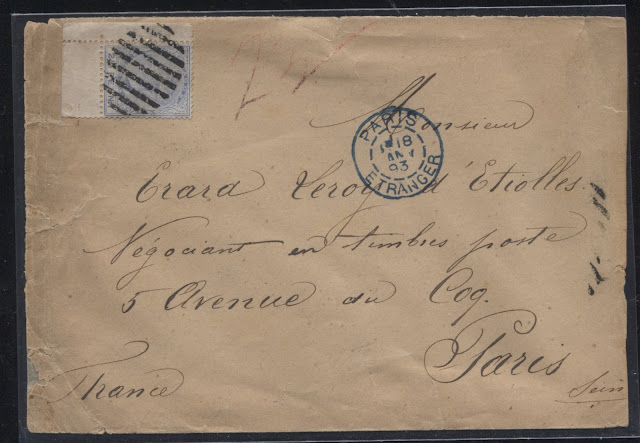 Monsieur
PARIS
18
93
ETRANGER
Erard Leroy d'Etiolles.
Négociant en timbres poste
5 Avenue du Coq.
Paris
France
Seine